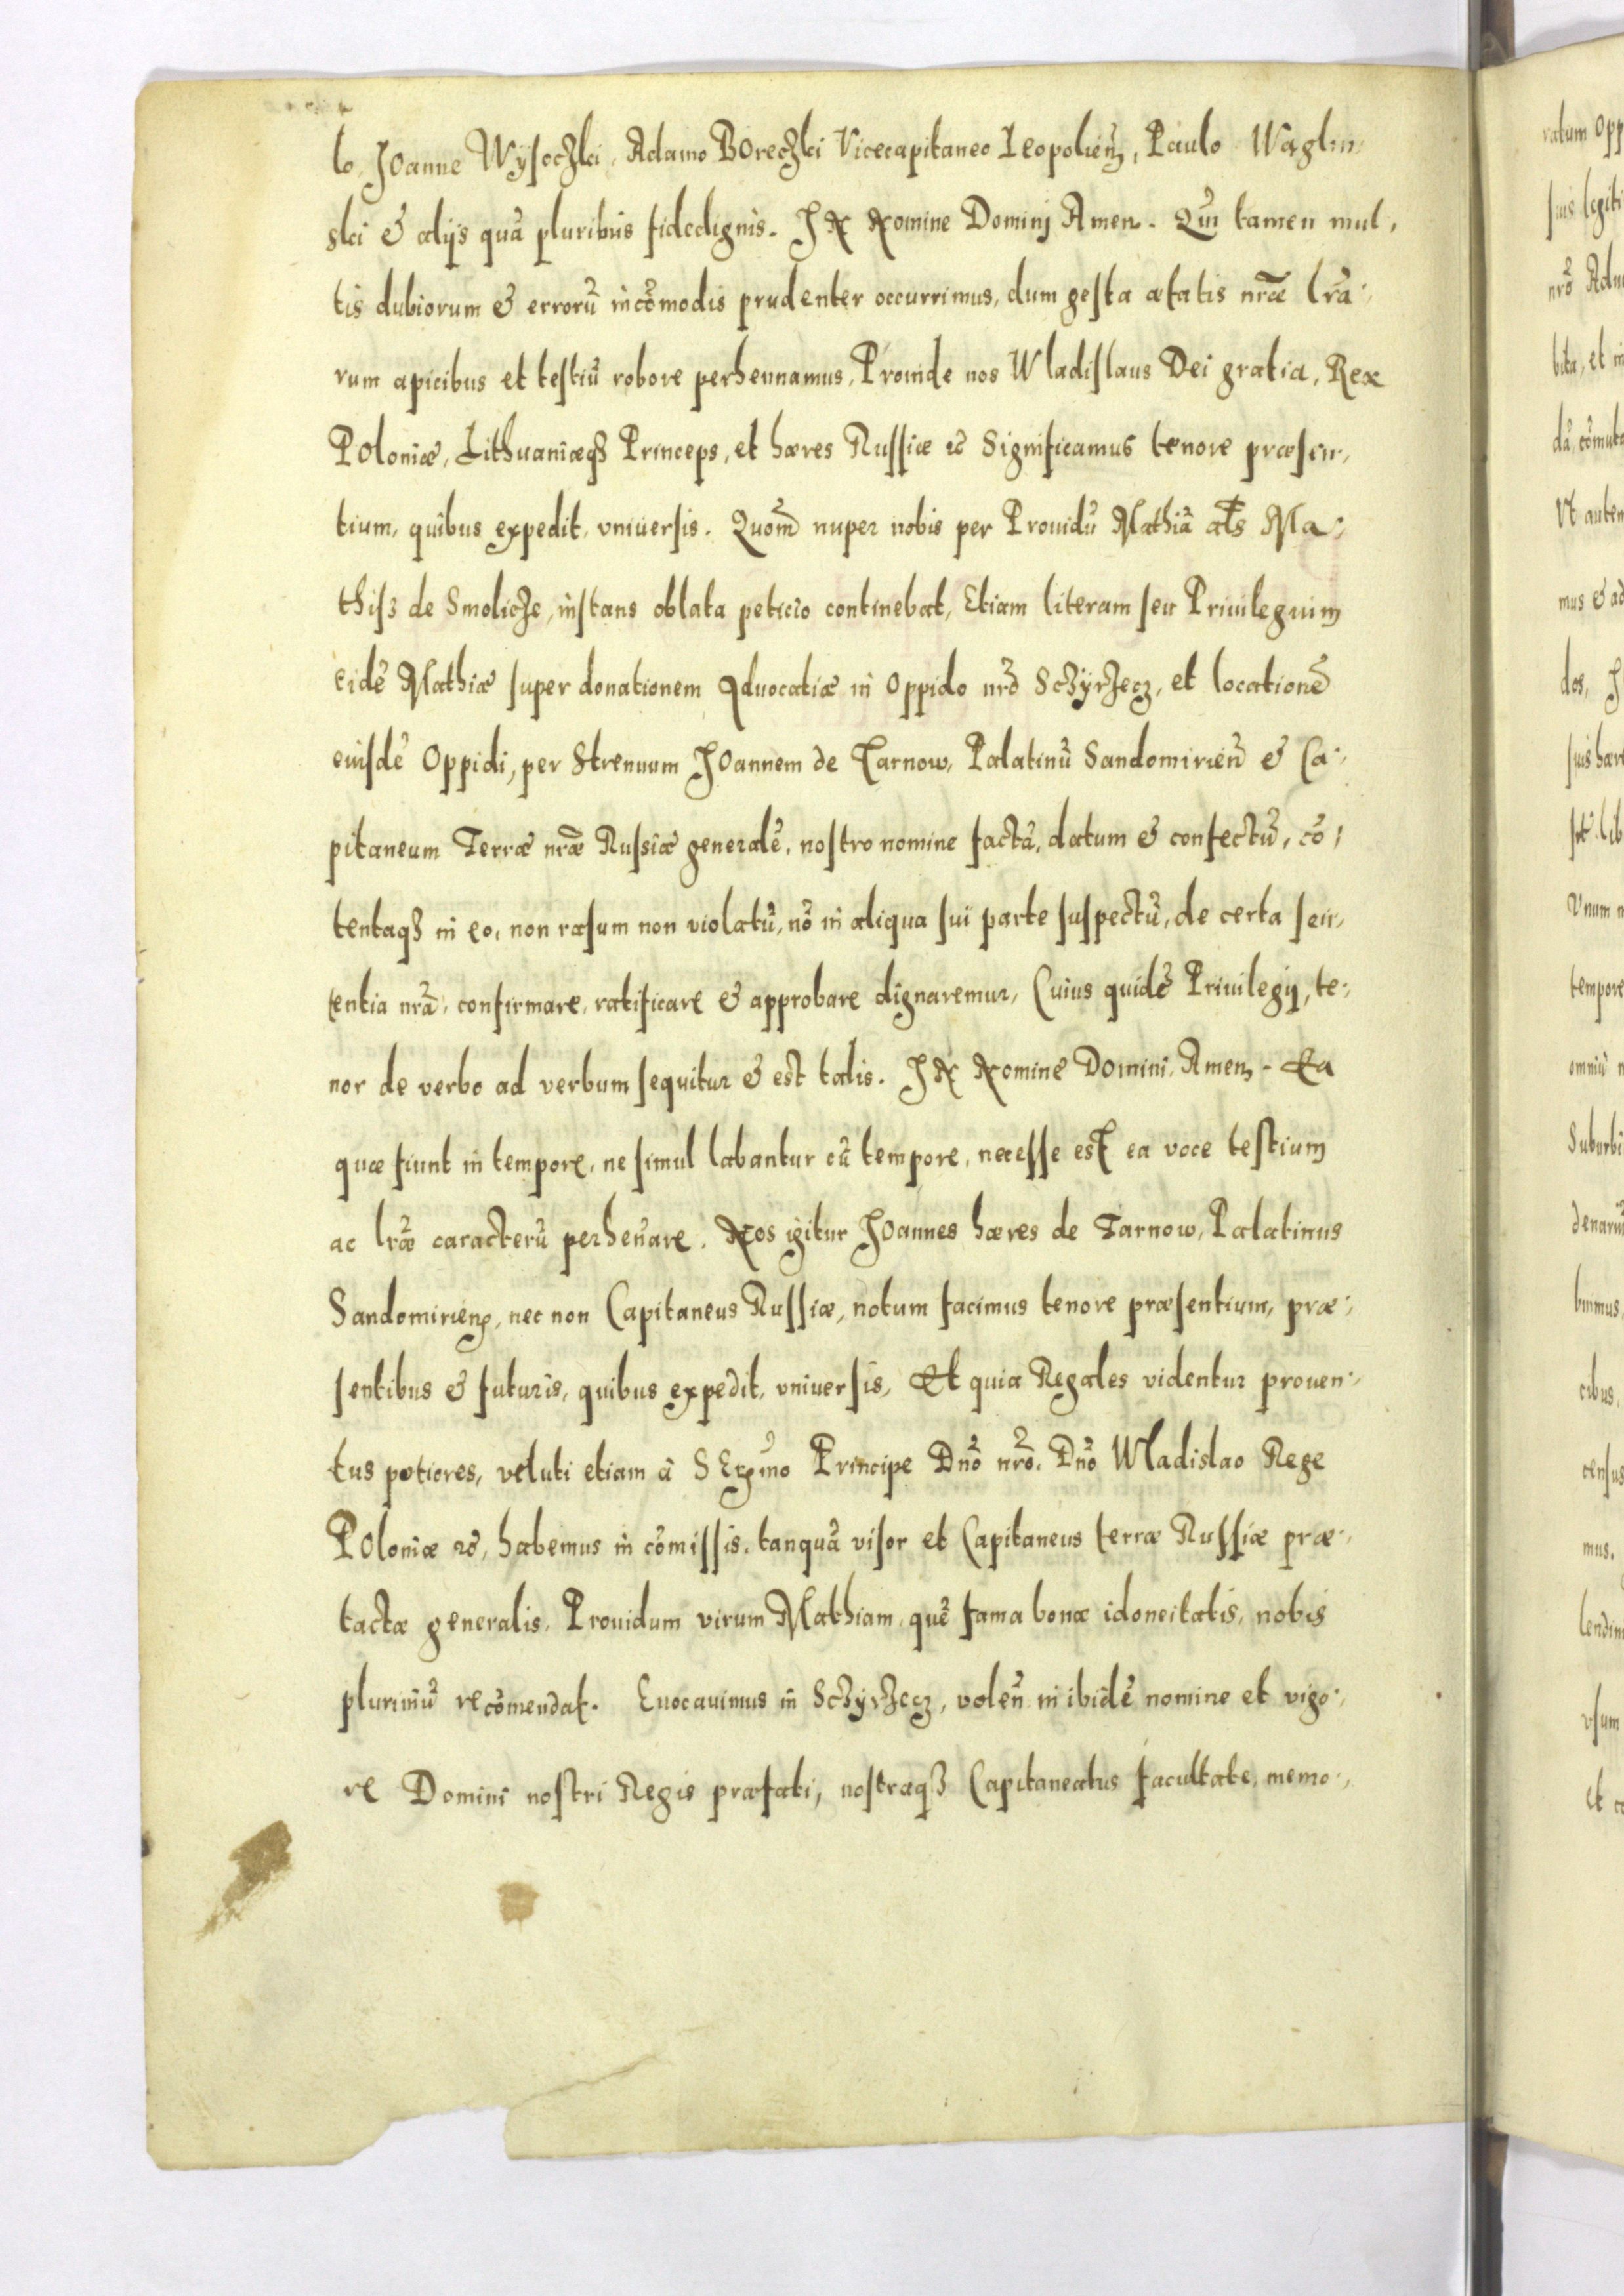 lo, Joanne Wysoczki, Adamo Boreczki Vicecapitaneo Leopolien̄, Paulo Waglin,
ski & alijs quā pluribus fidedignis. IN Nomine Dominj Amen. Qm̄ tamen mul,
tis dubiorum & errorū incōmodis prudenter occurrimus, dum gesta ætatis nr̄æ lr̄a,
rum apicibus et testiū robore perhennamus, Proinde nos Wladislaus Dei gratia, Rex
Poloniæ, Lithuaniæqȝ Princeps, et hæres Russiæ ꝛc̄ Significamus tenore præsen,
tium, quibus expedit, vniuersis. Quom̄ nuper nobis per Prouidū Mathiā al̄s Ma,
thiss de Smolicze, instans oblata peticio continebat, Etiam literam seu Priuilegium
eidē Mathiæ super donationem Aduocatiæ in Oppido nr̄o Sczyrzecz, et locationē
eiusdē Oppidi, per Strenuum Joannem de Tarnow, Palatinū Sandomirien̄ & Ca,
pitaneum Terræ nr̄æ Russiæ generalē, nostro nomine factā, datum & confectū, cō,
tentaqȝ in eo, non rasum non violatū, nō in aliqua sui parte suspectū, de certa scien,
tentia nr̄a, confirmare, ratificare & approbare dignaremur, Cuius quidē Priuilegij, te,
nor de verbo ad verbum sequitur & est talis. IN Nomine Domini Amen. Ea
quæ fiunt in tempore, ne simul labantur cū tempore, necesse est ea voce testium
ac lr̄æ caracterū perhen̄are. Nos igitur Joannes hæres de Tarnow, Palatinus
Sandomirien̄, nec non Capitaneus Russiæ, notum facimus tenore præsentium, præ,
sentibus & futuris, quibus expedit, vniuersis, Et quia Regales videntur prouen,
tus potiores, veluti etiam à Serm̄o Principe Dn̄o nr̄o, Dn̄o Wladislao Rege
Poloniæ ꝛc̄, habemus in cōmissis, tanquā visor et Capitaneus terræ Russiæ præ,
tactæ generalis, Prouidum virum Mathiam, quē fama bonæ idoneitatis, nobis
plurimū recōmendat. Euocauimus in Sczyrzecz, volen̄ in ibidē nomine et vigo,
re Domini nostri Regis præfati, nostraqȝ Capitaneatus facultate, memo,